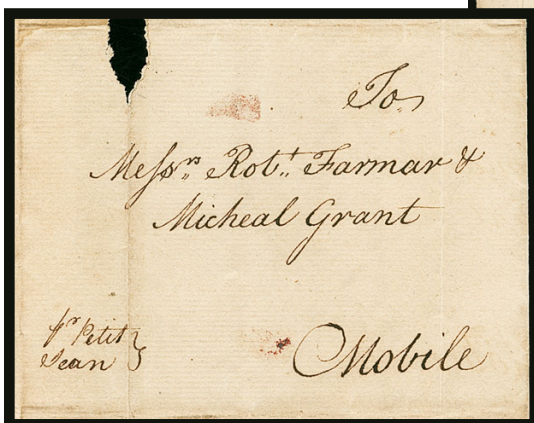 To
Messrs. Robt. Farmar &
Micheal Grant
pr Petit
Jean }
Mobile